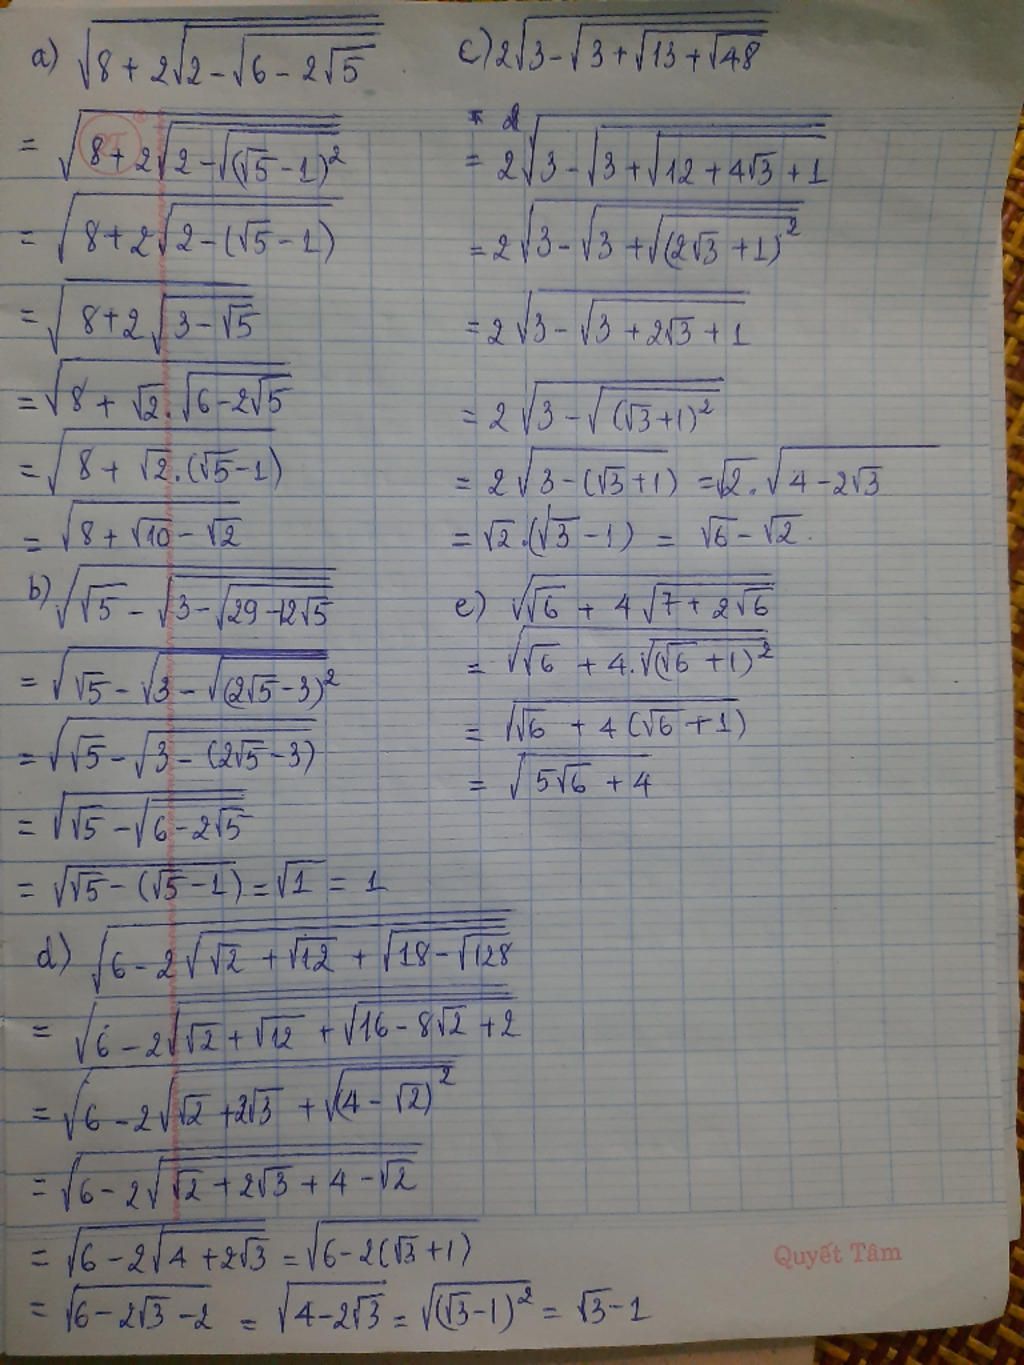 a) √(8 + 2√(2 - √(6 - 2√5)))
= √(8 + 2√(2 - √((√5 - 1)²)))
= √(8 + 2√(2 - (√5 - 1)))
= √(8 + 2√(3 - √5))
= √(8 + √2.√(6 - 2√5))
= √(8 + √2.(√5 - 1))
= √(8 + √10 - √2)
b) √(√5 - √(3 - √(29 - 12√5)))
= √(√5 - √(3 - √((2√5 - 3)²)))
= √(√5 - √(3 - (2√5 - 3)))
= √(√5 - √(6 - 2√5))
= √(√5 - (√5 - 1)) = √1 = 1
d) √(6 - 2√(√2 + √12 + √(18 - √128)))
= √(6 - 2√(√2 + √12 + √(16 - 8√2 + 2)))
= √(6 - 2√(√2 + 2√3 + √((4 - √2)²)))
= √(6 - 2√(√2 + 2√3 + 4 - √2))
= √(6 - 2√(4 + 2√3)) = √(6 - 2(√3 + 1))
= √(6 - 2√3 - 2) = √(4 - 2√3) = √((√3 - 1)²) = √3 - 1
c) 2√(3 - √(3 + √(13 + √48)))
= 2√(3 - √(3 + √(12 + 4√3 + 1)))
= 2√(3 - √(3 + √((2√3 + 1)²)))
= 2√(3 - √(3 + 2√3 + 1))
= 2√(3 - √((√3 + 1)²))
= 2√(3 - (√3 + 1)) = √2.√(4 - 2√3)
= √2.(√3 - 1) = √6 - √2.
e) √(√6 + 4√(7 + 2√6))
= √(√6 + 4.√((√6 + 1)²))
= √(√6 + 4(√6 + 1))
= √(5√6 + 4)
Quyết Tâm